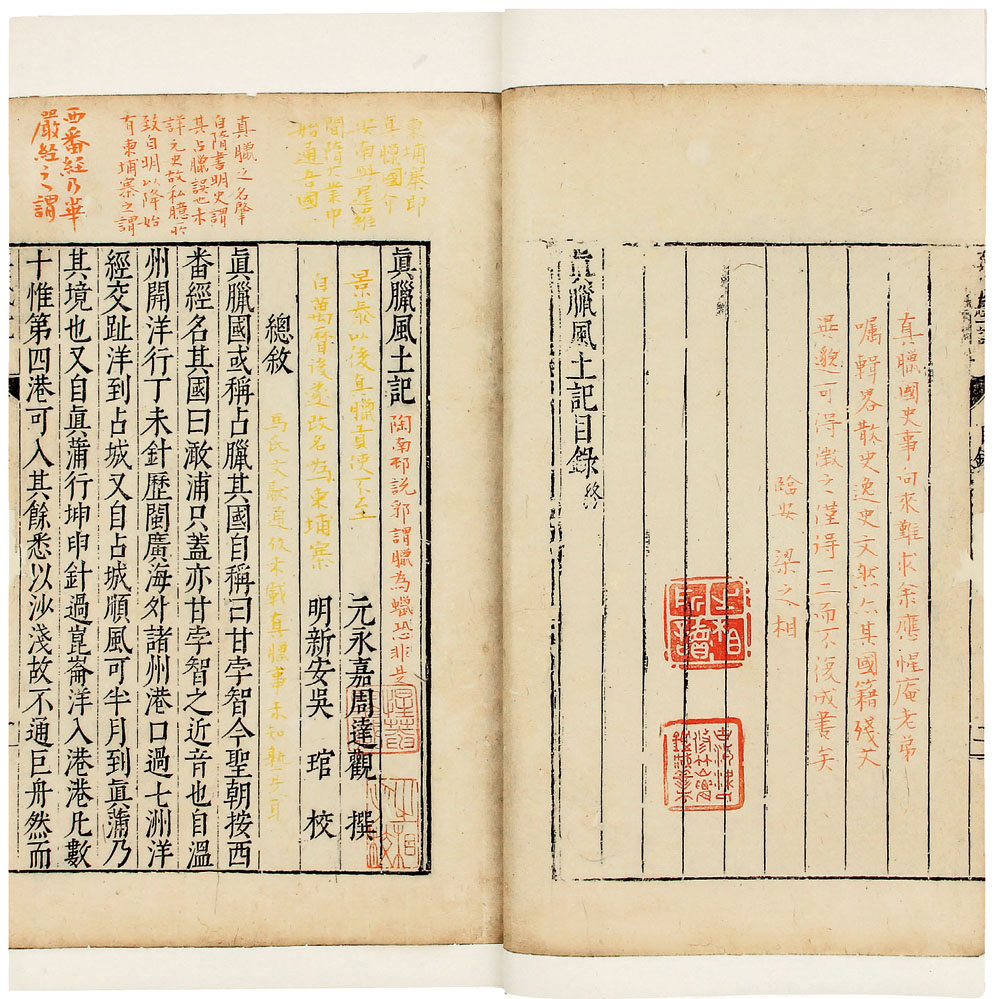 真臘國史事向來難求余應惺庵老弟
囑輯畧散史逸史文然
其國籍殘欠
可得徵之僅得一二而不復成書矣
臨安 梁之相
之相
眞臘風土記目錄終
東埔寨即
真臘國介
安南與暹羅
間隋大業中
始通吾國
眞臘風土記
陶南邨説郛謂臘為蠟恐非是
景泰以後真臘貢使不至
元永嘉周達觀 撰
自萬曆後更改名為柬埔寨
明新安吳 琯 校
總敘
馬氏文獻通攷未載真臘事未知孰
真臘之名肇
自隋書明史謂
其占臘誤也未
詳元史故私臆
致自明以降始
有柬埔寨之謂
眞臘國或稱占臘其國自稱曰甘孛智今聖朝按西
番經名其國曰澉浦只蓋亦甘孛智之近音也自溫
州開洋行丁未針歷閩廣海外諸州港口過七洲洋
經交趾洋到占城又自占城順風可半月到眞蒲乃
西番經乃華
嚴經之謂
其境也又自眞蒲行坤申針過崑崙洋入港港凡數
十惟第四港可入其餘悉以沙淺故不通巨舟然而